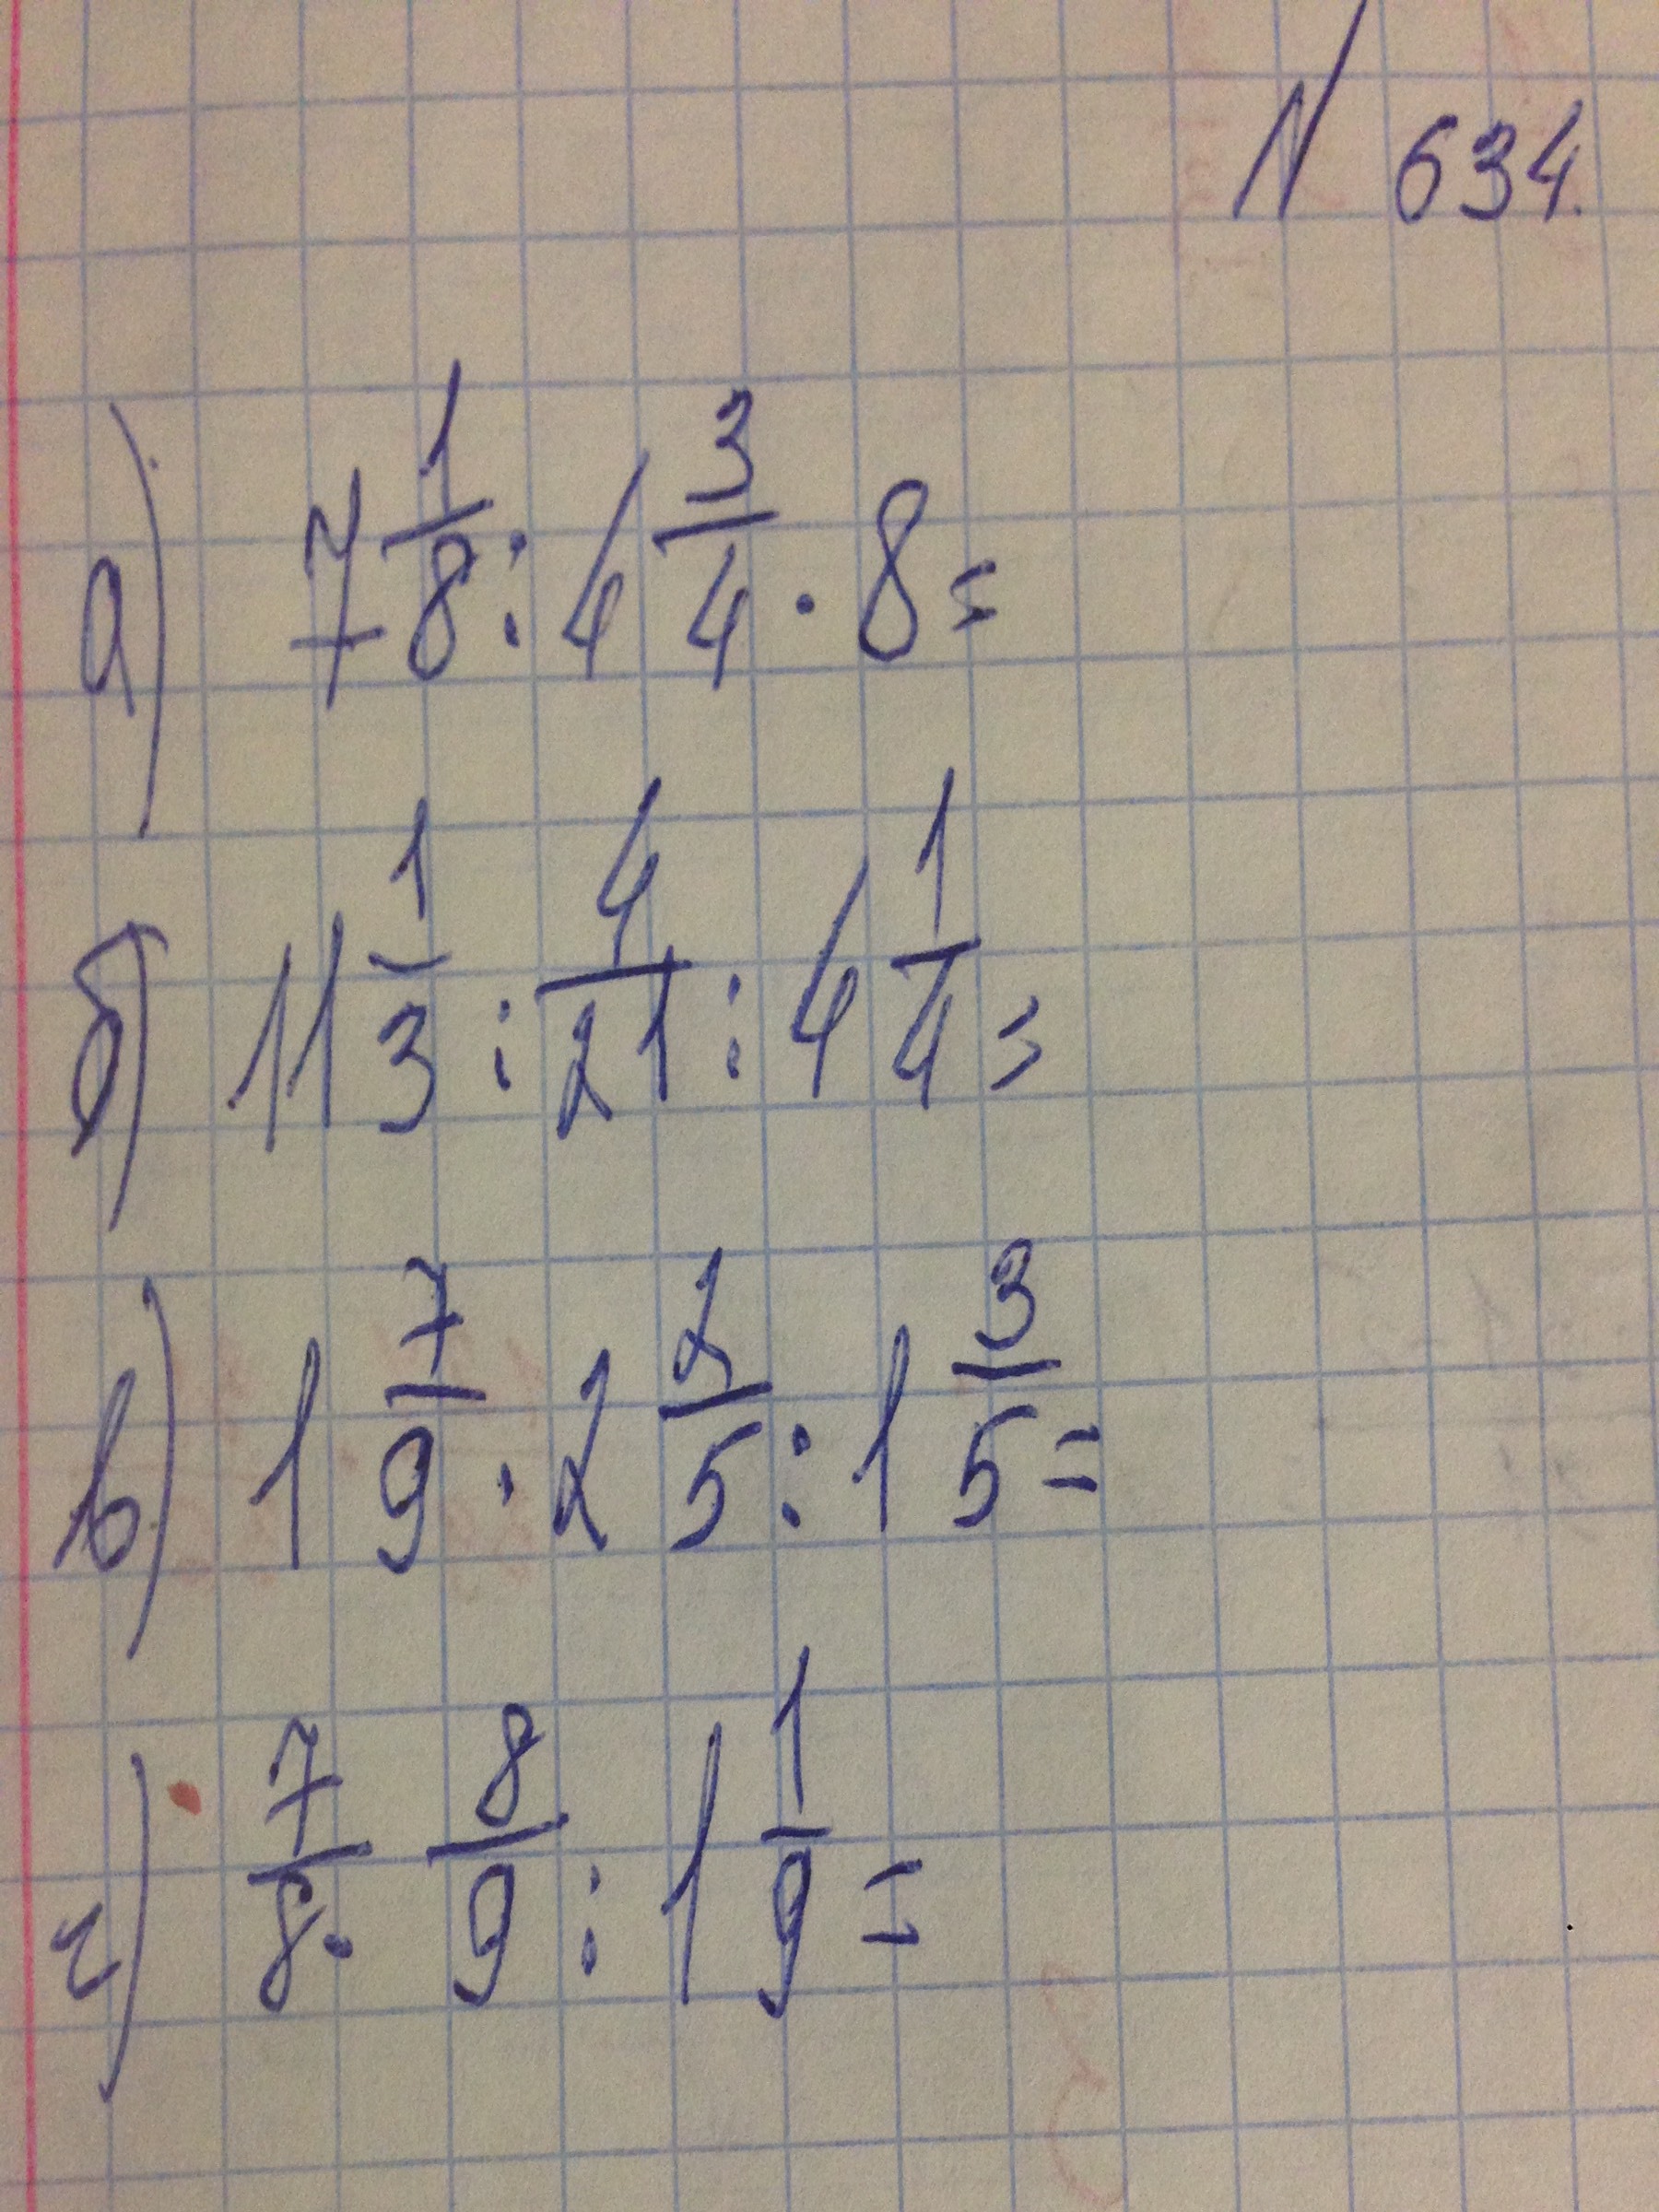 N 634.
а) 7 1/8 : 4 3/4 · 8 =
б) 11 1/3 : 4/21 : 4 1/4 =
в) 1 7/9 · 2 2/5 : 1 3/5 =
г) 7/8 · 8/9 : 1 1/9 =